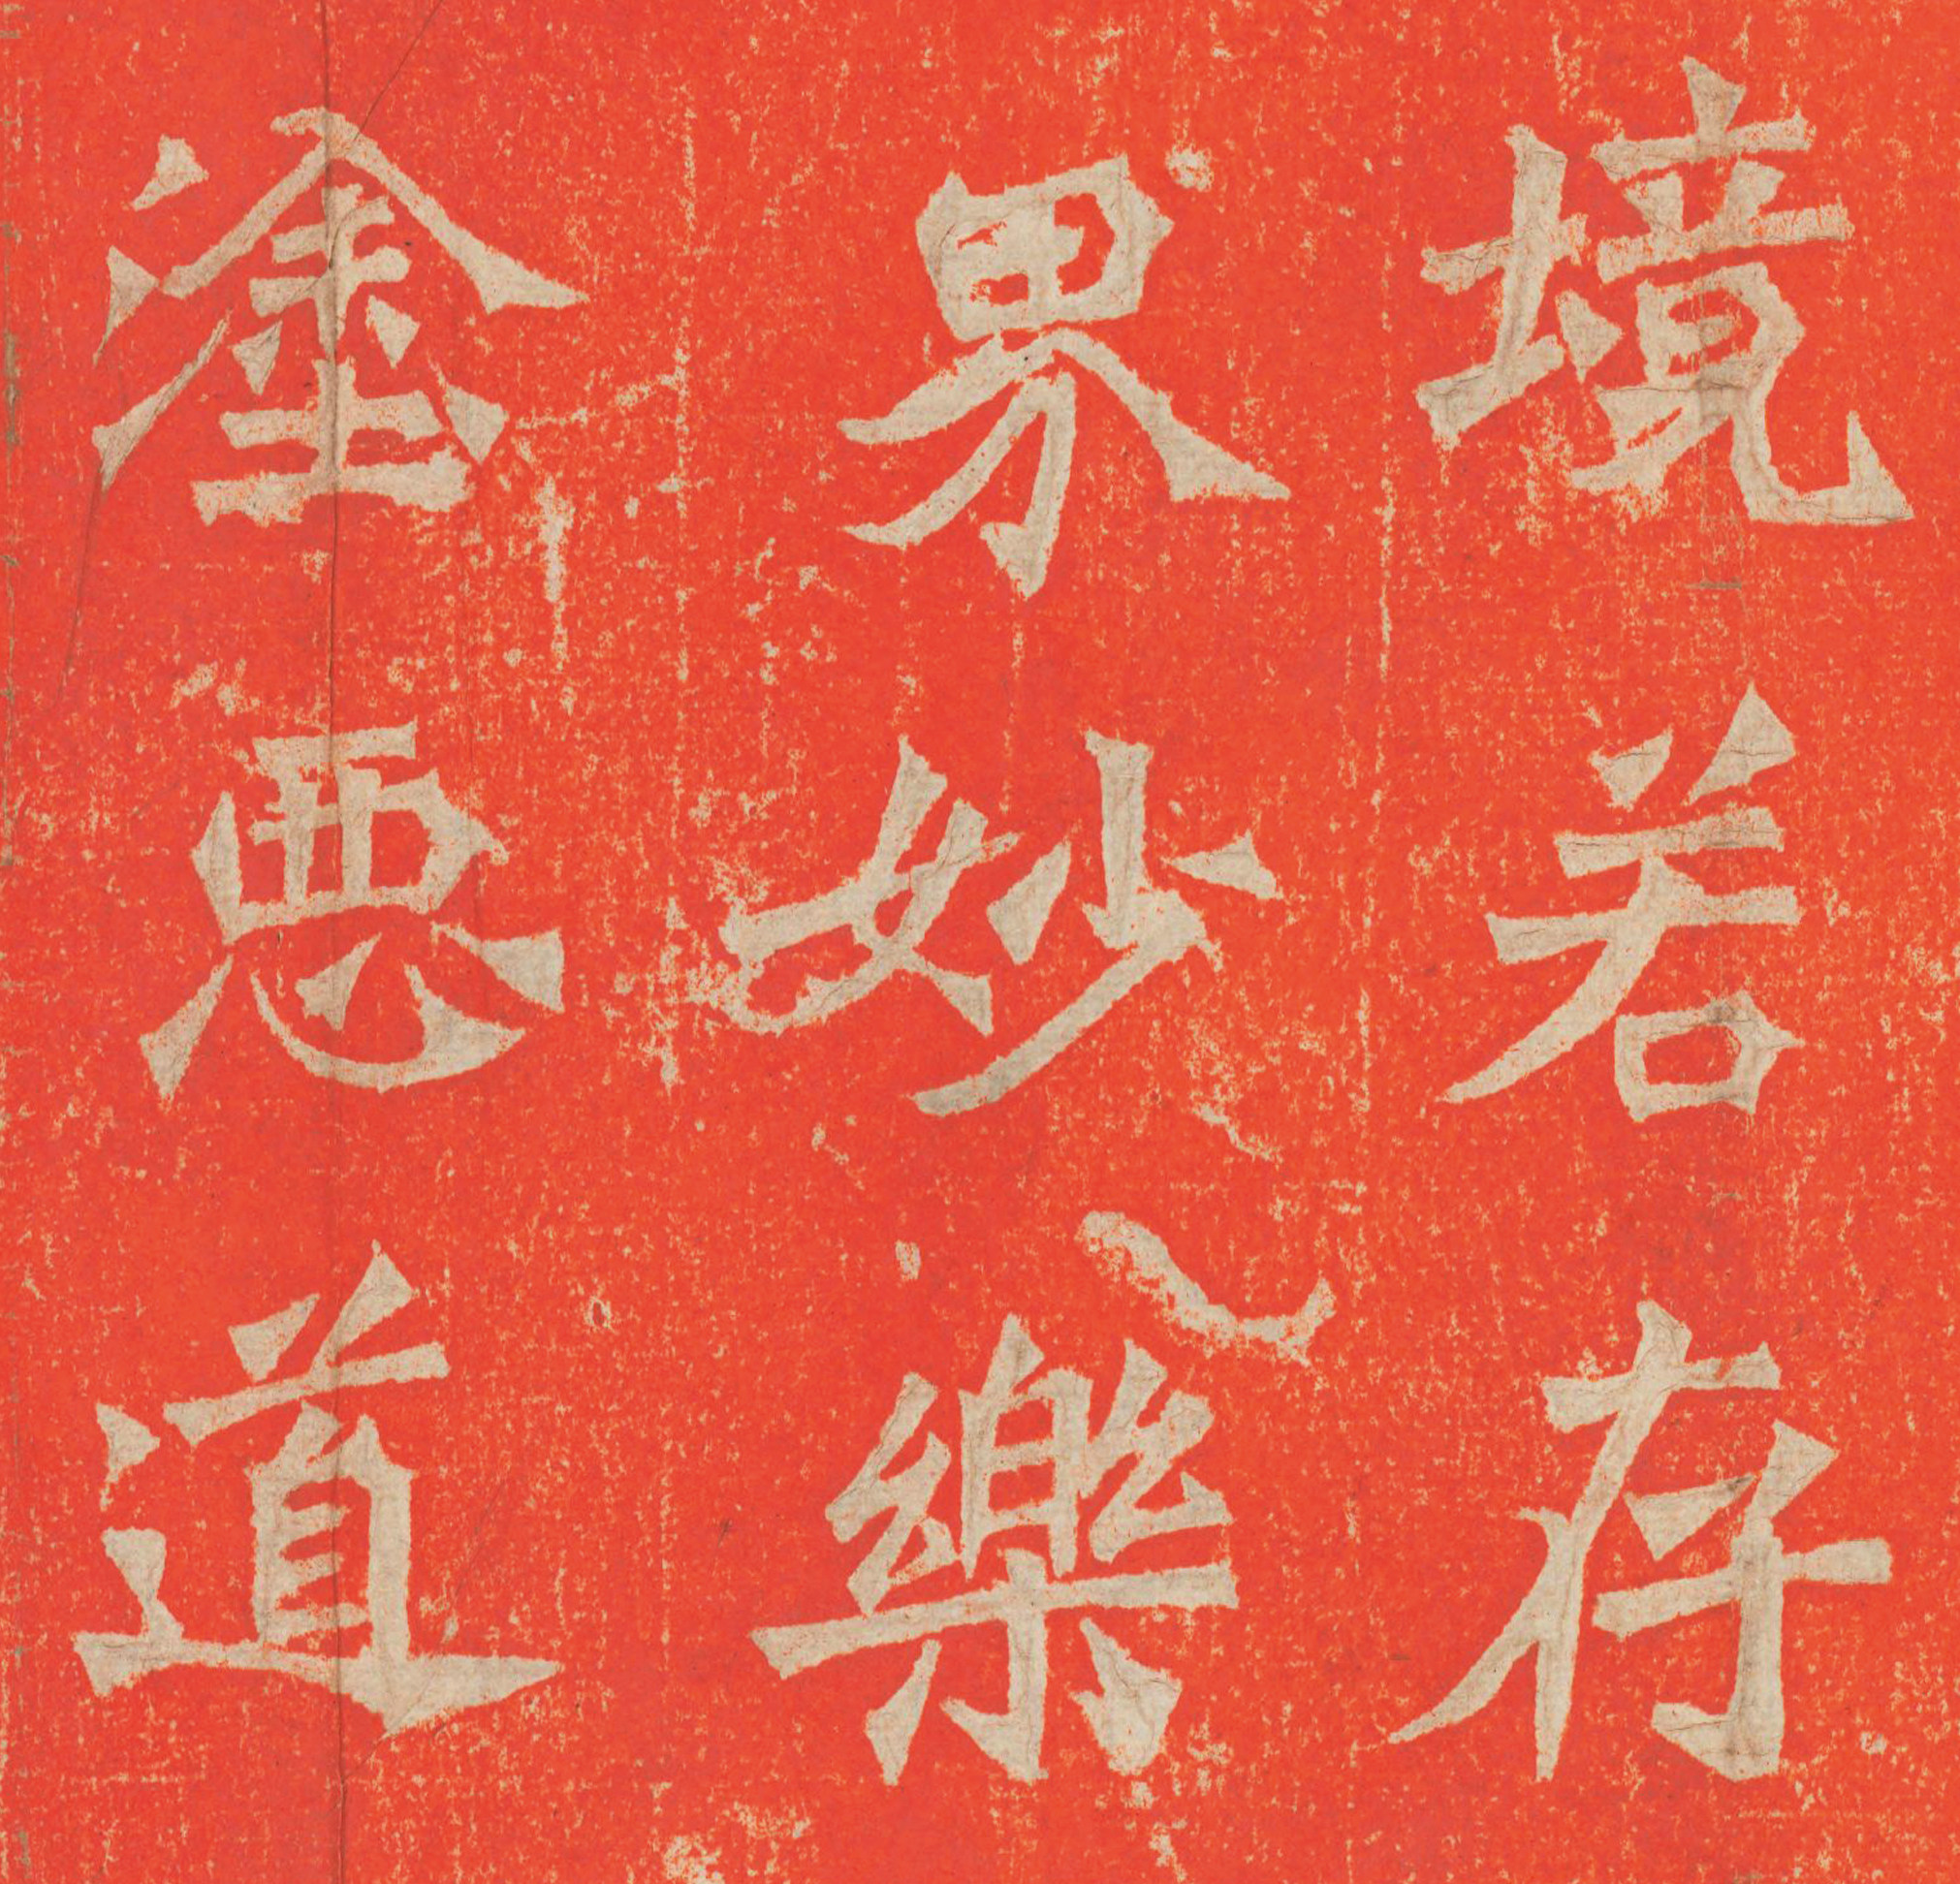 境若存
界妙樂
塗悪道